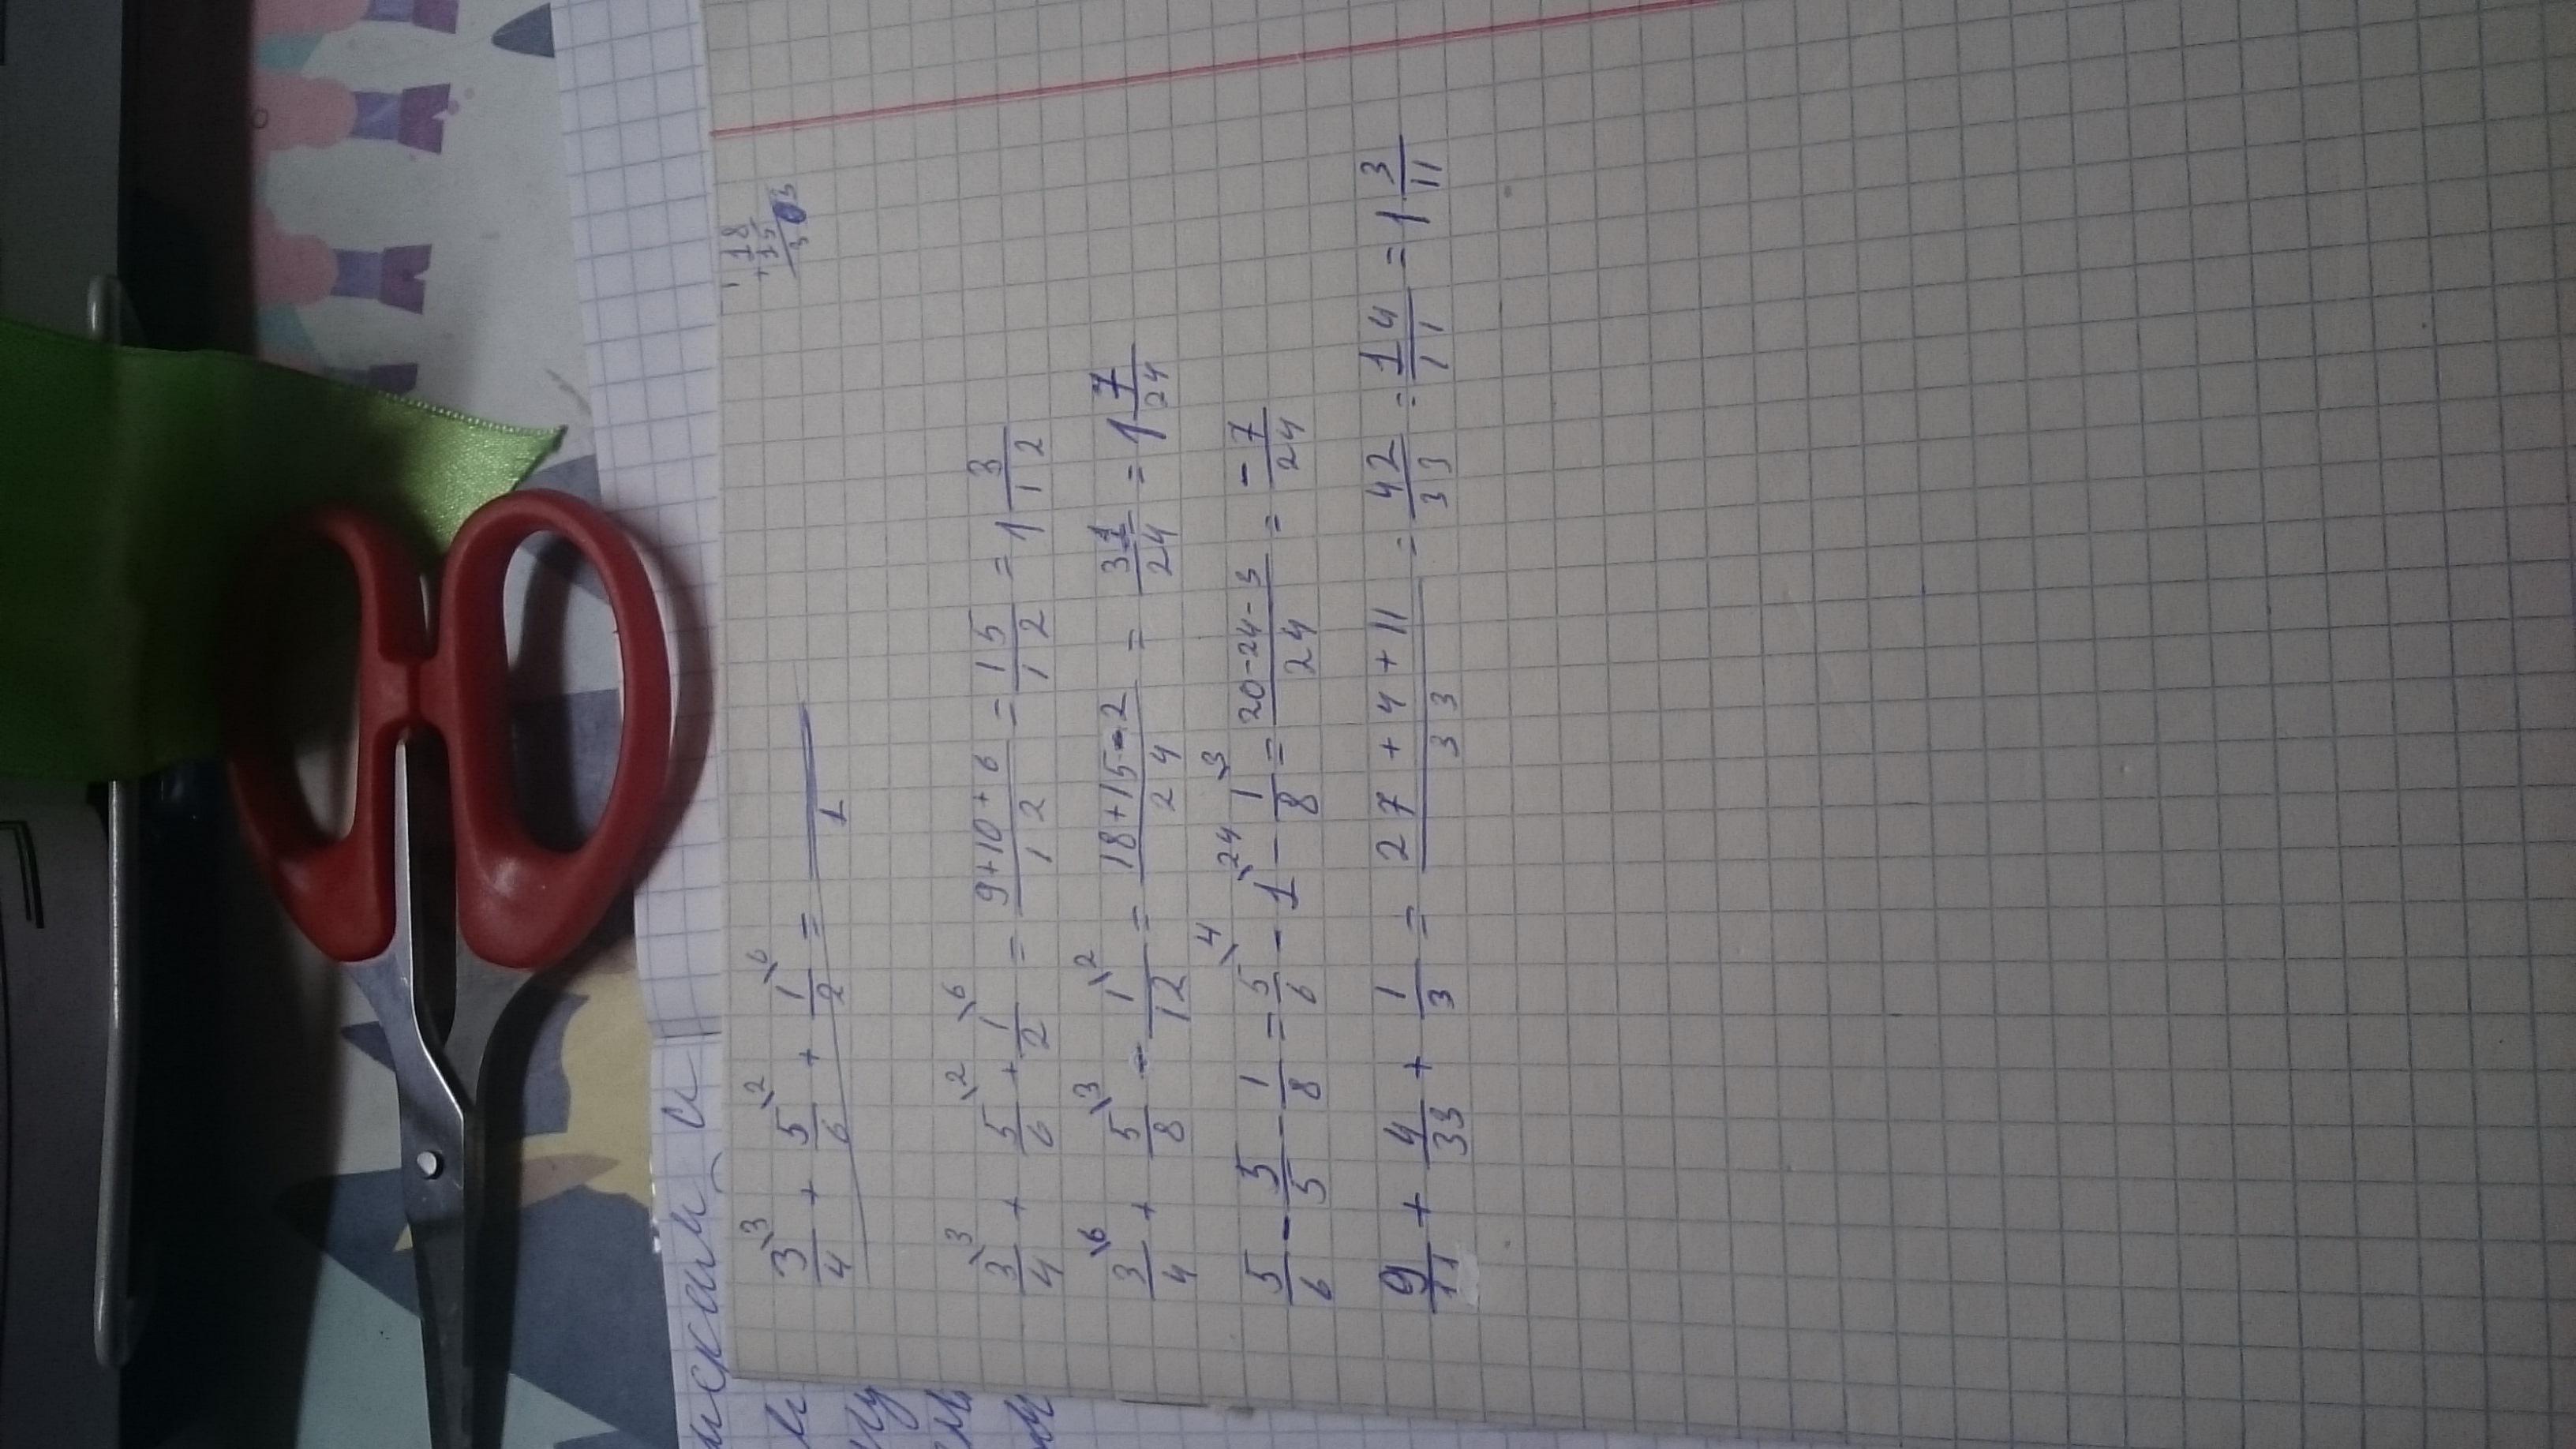 1
18
+ 15
33
3/4 \3 + 5/6 \2 + 1/2 \6 = /1
3/4 \3 + 5/6 \2 + 1/2 \6 = 9+10+6/12 = 15/12 = 1 3/12
3/4 \6 + 5/8 \3 - 1/12 \2 = 18+15-2/24 = 31/24 = 1 7/24
5/6 - 5/5 - 1/8 = 5/6 \4 - 1 \24 - 1/8 \3 = 20-24-3/24 = - 7/24
9/11 + 4/33 + 1/3 = 27+4+11/33 = 42/33 = 14/11 = 1 3/11